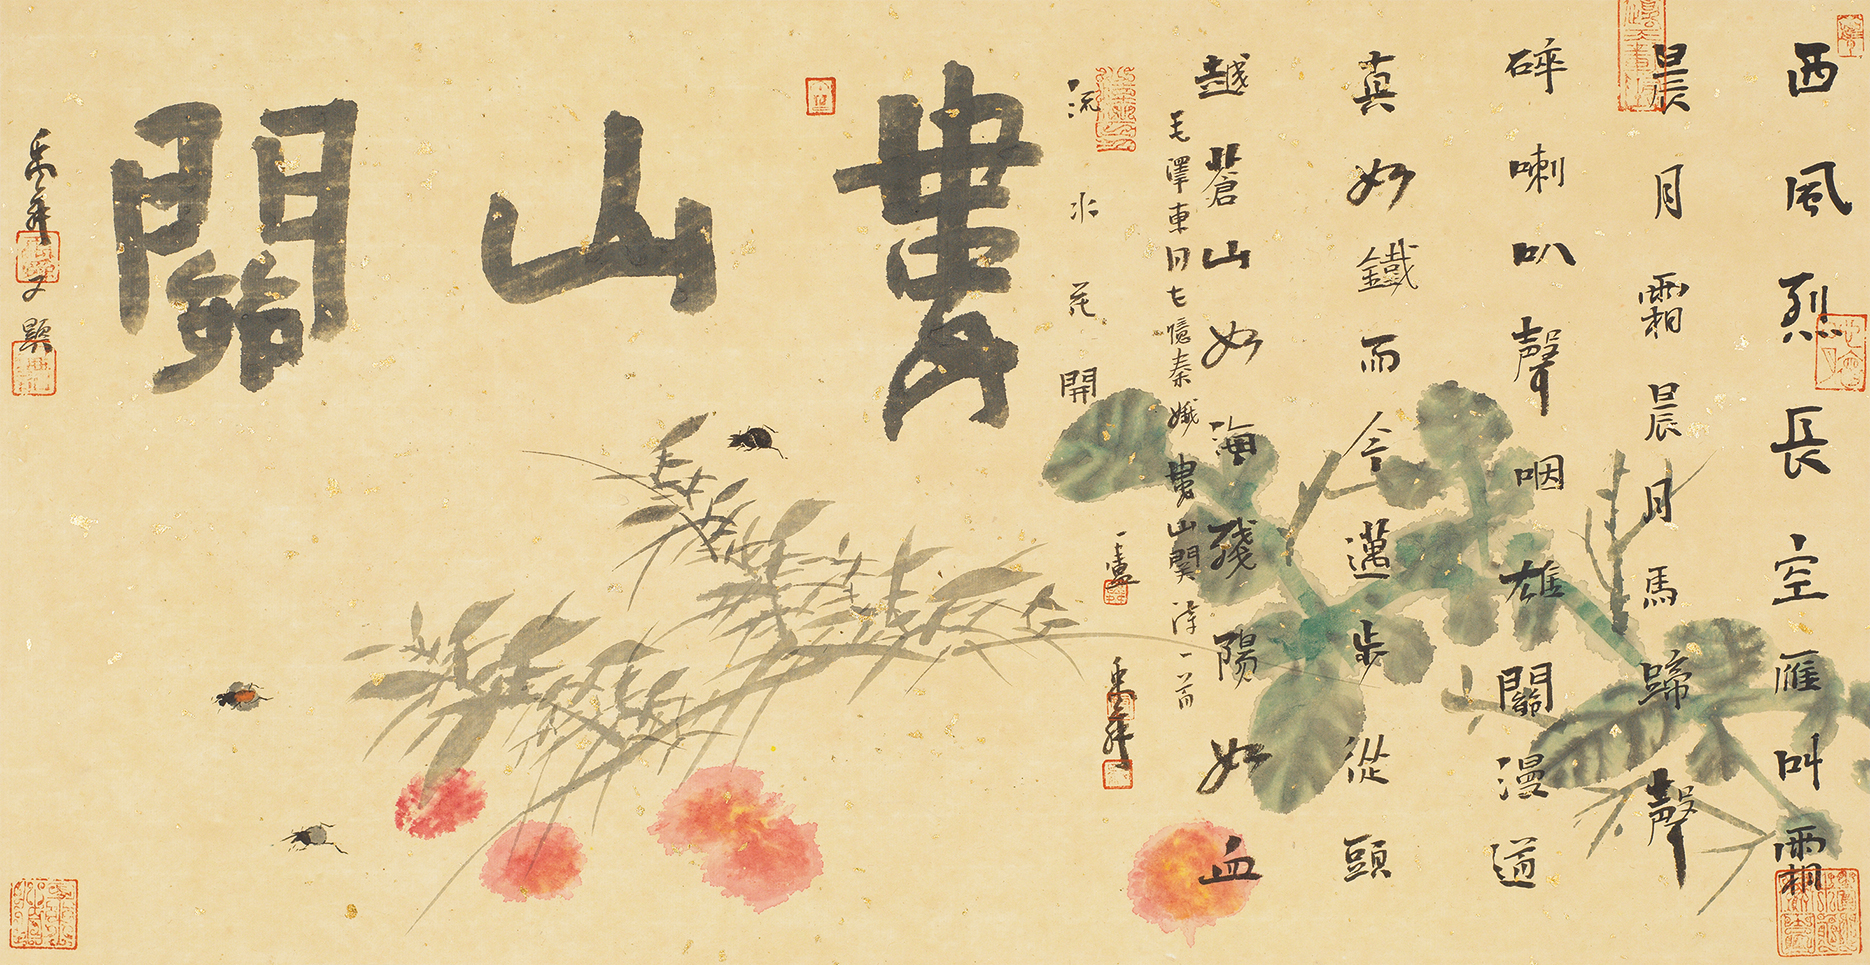 西風烈長空雁叫霜
晨月霜晨月馬蹄聲
碎喇叭聲咽雄關漫道
真如鐵而今邁步從頭
越蒼山如海殘陽如血
毛澤東憶秦娥婁山關詩一首
流水花開
婁山關
又題